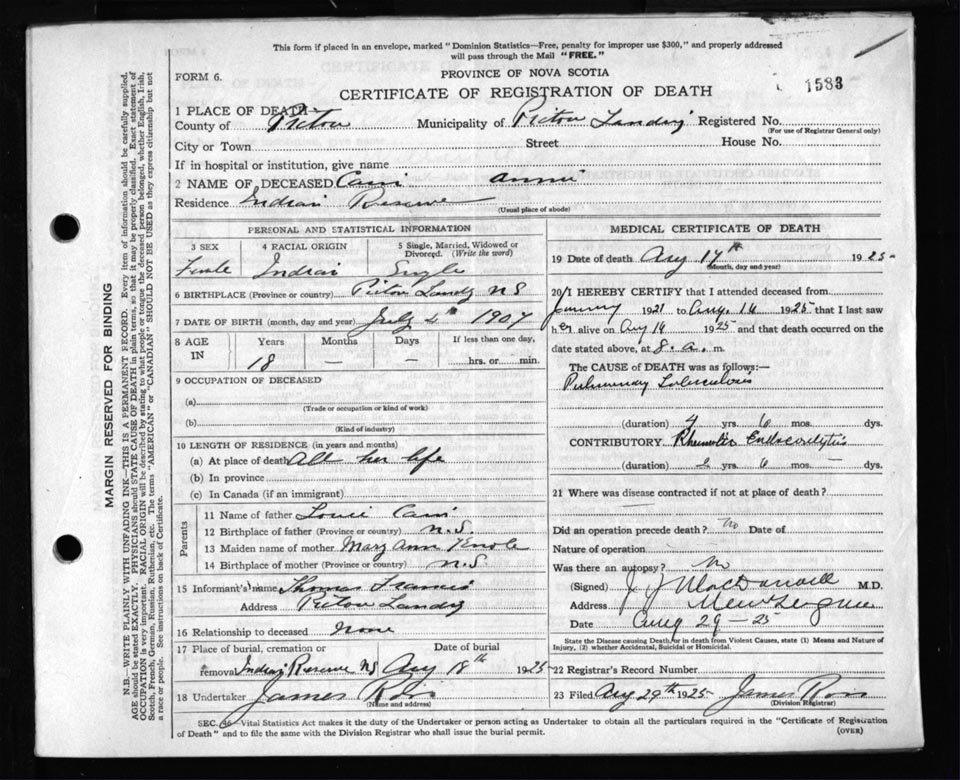 This form if placed in an envelope, marked "Dominion Statistics—Free, penalty for improper use $300," and properly addressed
will pass through the Mail "FREE."
FORM 6.
PROVINCE OF NOVA SCOTIA
CERTIFICATE OF REGISTRATION OF DEATH
1583
1 PLACE OF DEATH
County of Pictou Municipality of Pictou Landing Registered No.
(For use of Registrar General only)
City or Town Street House No.
If in hospital or institution, give name
2 NAME OF DECEASED Annie
Residence Indian Reserve
(Usual place of abode)
PERSONAL AND STATISTICAL INFORMATION
3 SEX 4 RACIAL ORIGIN 5 Single, Married, Widowed or Divorced. (Write the word)
Female Indian Single
6 BIRTHPLACE (Province or country) Pictou Landg N S
7 DATE OF BIRTH (month, day and year) July 1907
8 AGE IN Years Months Days If less than one day,
18 — — hrs. or min.
9 OCCUPATION OF DECEASED
(a)
(Trade or occupation or kind of work)
(b)
(Kind of industry)
10 LENGTH OF RESIDENCE (in years and months)
(a) At place of death All her life
(b) In province
(c) In Canada (if an immigrant)
Parents
11 Name of father Louie
12 Birthplace of father (Province or country) N.S.
13 Maiden name of mother Mary Ann
14 Birthplace of mother (Province or country) N.S.
15 Informant's name Thomas Francis
Address Pictou Landg
16 Relationship to deceased None
17 Place of burial, cremation or removal Date of burial
Indian Reserve NS Aug 18th 1925
18 Undertaker James Ross
(Name and address)
MEDICAL CERTIFICATE OF DEATH
19 Date of death Aug 17th 1925
(Month, day and year)
20 I HEREBY CERTIFY that I attended deceased from
January 1921 to Aug. 16 1925 that I last saw
her alive on Aug 16 1925 and that death occurred on
date stated above, at 8. a. m.
The CAUSE of DEATH was as follows:—
Pulmonary Tuberculosis
(duration) 4 yrs. 6 mos. dys.
CONTRIBUTORY Rheumatic Endocarditis
(duration) yrs. 6 mos. dys.
21 Where was disease contracted if not at place of death?
Did an operation precede death? No Date of
Nature of operation
Was there an autopsy? No
(Signed) J J MacDonald M.D.
Address New Glasgow
Date Aug 29 – 25
State the Disease causing Death, or in death from Violent Causes, state (1) Means and Nature of
Injury, (2) whether Accidental, Suicidal or Homicidal.
22 Registrar's Record Number
23 Filed Aug 29th 1925 James Ross
(Division Registrar)
SEC. 36—Vital Statistics Act makes it the duty of the Undertaker or person acting as Undertaker to obtain all the particulars required in the "Certificate of Registration
of Death" and to file the same with the Division Registrar who shall issue the burial permit.
(OVER)
MARGIN RESERVED FOR BINDING
N.B.—WRITE PLAINLY WITH UNFADING INK—THIS IS A PERMANENT RECORD. Every item of information should be carefully supplied.
AGE should be stated EXACTLY. PHYSICIANS should STATE CAUSE OF DEATH in plain terms, so that it may be properly classified. Exact statement of
OCCUPATION is very important. RACIAL ORIGIN will be described by stating to what people or tongue the deceased person belonged, whether English, Irish,
Scotch, French, German, Russian, Ruthenian, etc. The terms "AMERICAN" or "CANADIAN" SHOULD NOT BE USED as they express citizenship but not
a race or people. See instructions on back of Certificate.